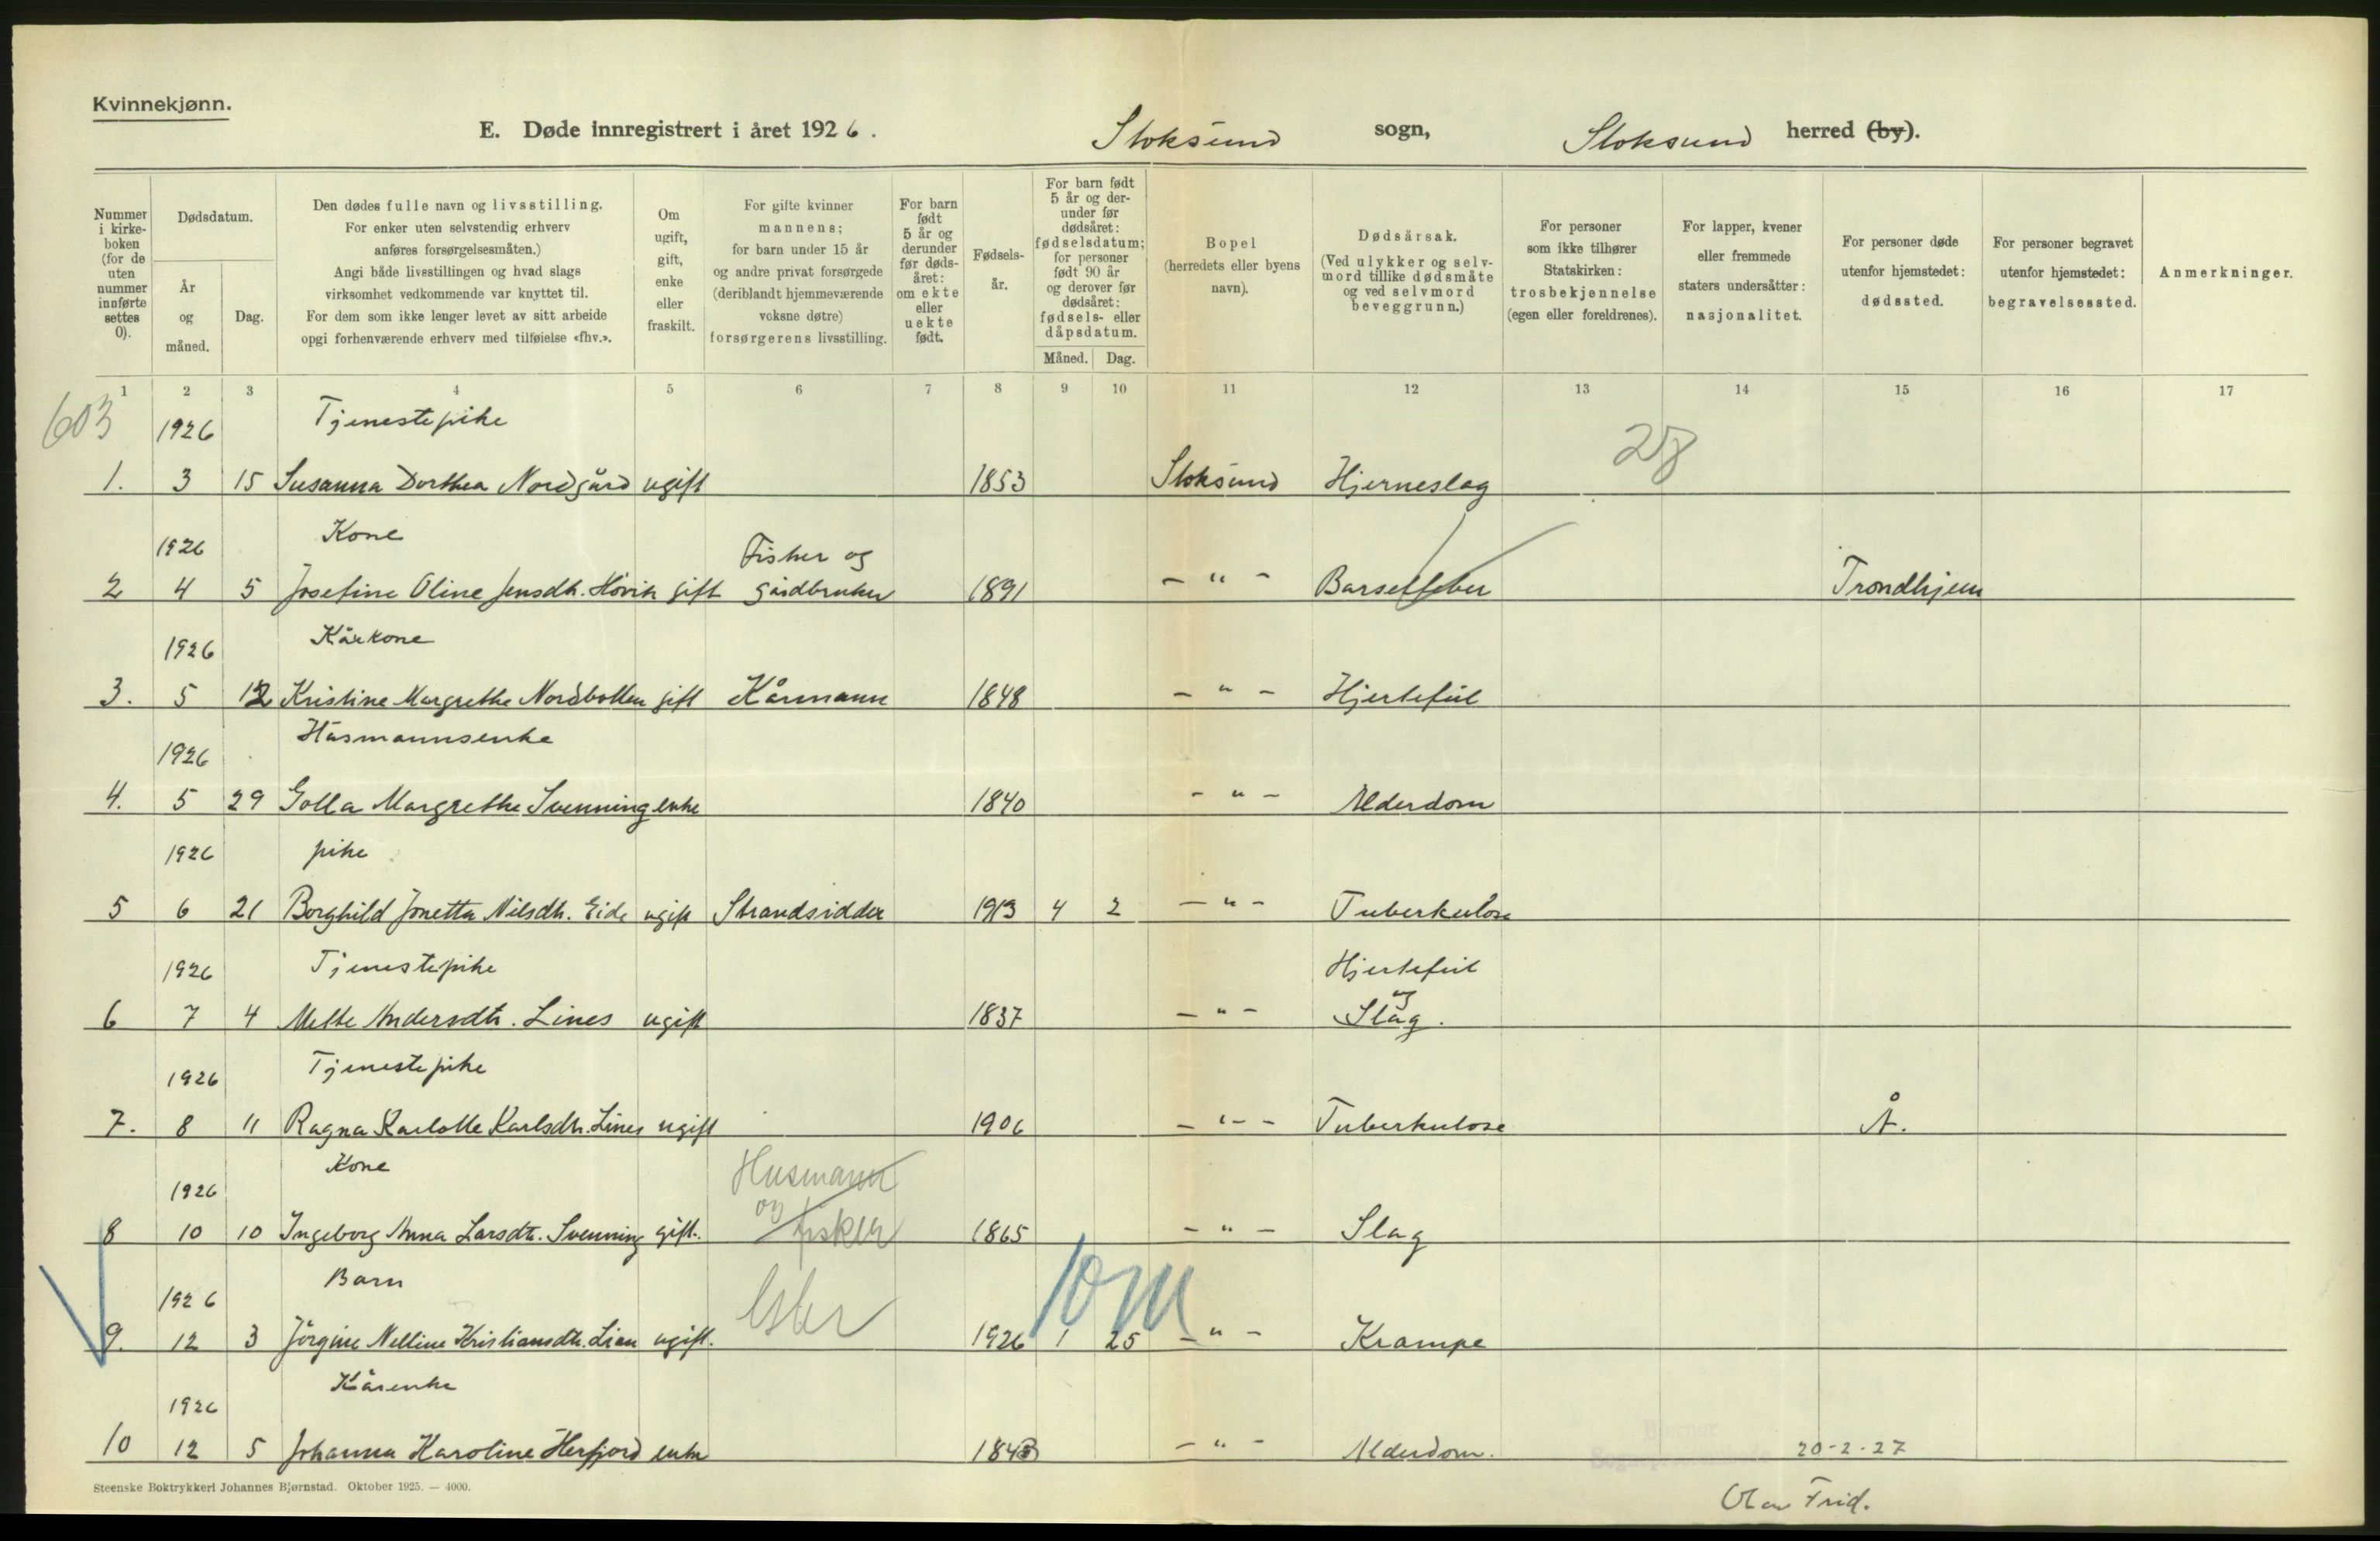 Kvinnekjønn.
E. Døde innregistrert i året 1926. Stoksund sogn, Stoksund herred (by).
Nummer i kirkeboken (for de uten nummer innførte settes 0).
Dødsdatum.
År og måned.
Dag.
Den dødes fulle navn og livsstilling.
For enker uten selvstendig erhverv
anføres forsørgelsesmåten.)
Angi både livsstillingen og hvad slags
virksomhet vedkommende var knyttet til.
For dem som ikke lenger levet av sitt arbeide
opgi forhenværende erhverv med tilføielse «fhv.».
Om ugift, gift, enke eller fraskilt.
For gifte kvinner
mannens;
for barn under 15 år
og andre privat forsørgede
(deriblandt hjemmeværende
voksne døtre)
forsørgerens livsstilling.
For barn født 5 år og derunder før dødsåret: om ekte eller uekte født.
Fødselsår.
For barn født 5 år og derunder før dødsåret: fødselsdatum; for personer født 90 år og derover før dødsåret: fødsels- eller dåpsdatum.
Måned. Dag.
Bopel
(herredets eller byens
navn).
Dødsårsak.
(Ved ulykker og selvmord tillike dødsmåte og ved selvmord beveggrunn.)
For personer
som ikke tilhører
Statskirken:
trosbekjennelse
(egen eller foreldrenes).
For lapper, kvener
eller fremmede
staters undersåtter:
nasjonalitet.
For personer døde
utenfor hjemstedet:
dødssted.
For personer begravet
utenfor hjemstedet:
begravelsessted.
Anmerkninger.
1 2 3 4 5 6 7 8 9 10 11 12 13 14 15 16 17
603 1926 Tjenestepike 28
1. 3 15 Susanna Dorthea Nordgård ugift 1853 Stoksund Hjerneslag
1926 Kone Fisker og
2 4 5 Josefine Oline Jensdtr. Hövik gift gårdbruker 1891 - " - Barselfeber Trondhjem
1926 Kårkone
3. 5 12 Kristine Margrethe Nordbotten gift Kårmann 1848 - " - Hjertefeil
1926 Husmannsenke
4. 5 29 Golla Margrethe Svenning enke 1840 - " - Alderdom
1926 pike
5 6 21 Borghild Jonetta Nilsdtr. Eide ugift Strandsidder 1913 4 2 - " - Tuberkulose
1926 Tjenestepike Hjertefeil
6 7 4 Mette Andersdtr. Lines ugift 1837 - " - og Slag.
1926 Tjenestepike
7. 8 11 Ragna Karlotte Karlsdtr. Lines ugift 1906 - " - Tuberkulose Å.
1926 Kone Husmann
8 10 10 Ingeborg Anna Larsdtr. Svenning gift. og fisker 1865 - " - Slag
1926 Barn 10 m
9. 12 3 Jörgine Nelline Kristiansdtr. Lian ugift. 1926 1 25 - " - Krampe
1926 Kårenke
10 12 5 Johanna Karoline Herfjord enke 1843 - " - Alderdom. 20-2-27
Steenske Boktrykkeri Johannes Bjørnstad. Oktober 1925. — 4000.